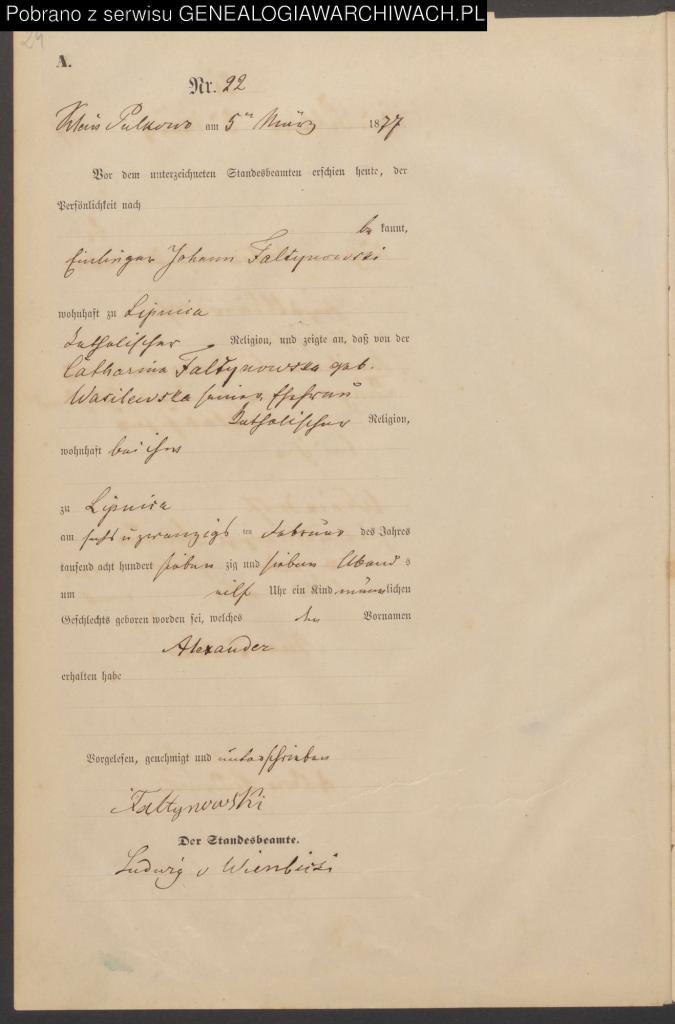 Pobrano z serwisu GENEALOGIAWARCHIWACH.PL
24
A.
Nr. 22
Klein Pulkowo am 5ten März 1877
Vor dem unterzeichneten Standesbeamten erschien heute, der
Persönlichkeit nach
be kannt,
Einlieger Johann Faltynowski
wohnhaft zu Lipnica
katholischer Religion, und zeigte an, daß von der
Catharina Faltynowska geb.
Wasilewska seiner Ehefrau
katholischer Religion,
wohnhaft bei ihm
zu Lipnica
am sechs u zwanzigs ten Februar des Jahres
tausend acht hundert sieben zig und sieben Abend s
um eilf Uhr ein Kind männlichen
Geschlechts geboren worden sei, welches den Vornamen
Alexander
erhalten habe
Vorgelesen, genehmigt und unterschrieben
Faltynowski
Der Standesbeamte.
Ludwig v